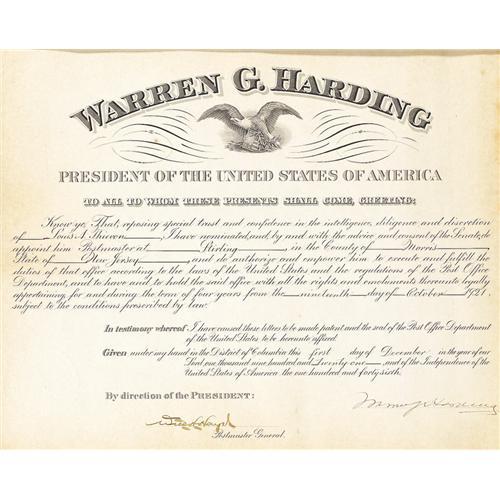 WARREN G. HARDING
PRESIDENT OF THE UNITED STATES OF AMERICA
TO ALL TO WHOM THESE PRESENTS SHALL COME, GREETING:
Know ye, That, reposing special trust and confidence in the intelligence, diligence and discretion
of Louis A. , I have nominated, and, by and with the advice and consent of the Senate, do
appoint him Postmaster at Stirling, in the County of Morris,
State of New Jersey, and do authorize and empower him to execute and fulfill the
duties of that office according to the laws of the United States and the regulations of the Post Office
Department, and to have and to hold the said office with all the rights and emoluments thereunto legally
appertaining, for and during the term of four years from the nineteenth day of October 1921,
subject to the conditions prescribed by law.
In testimony whereof I have caused these letters to be made patent and the seal of the Post Office Department
of the United States to be hereunto affixed.
Given under my hand in the District of Columbia this first day of December in the year of our
Lord one thousand nine hundred and twenty one, and of the Independence of the
United States of America the one hundred and forty sixth.
By direction of the PRESIDENT:
Warren G Harding
Will H Hays
Postmaster General.